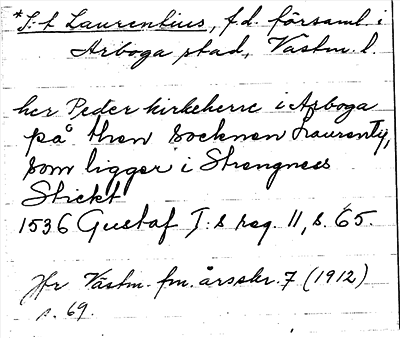 *S:t Laurentius, f.d. församl. i
Arboga stad, Västm. l.
her Peder kirkeherre i Arboga
på then socknen Laurentij,
som ligger i Strengnes
Stickt
1536 Gustaf I:s reg. 11, s. 65.
Jfr Västm. fm. årsskr. 7 (1912)
s. 69.